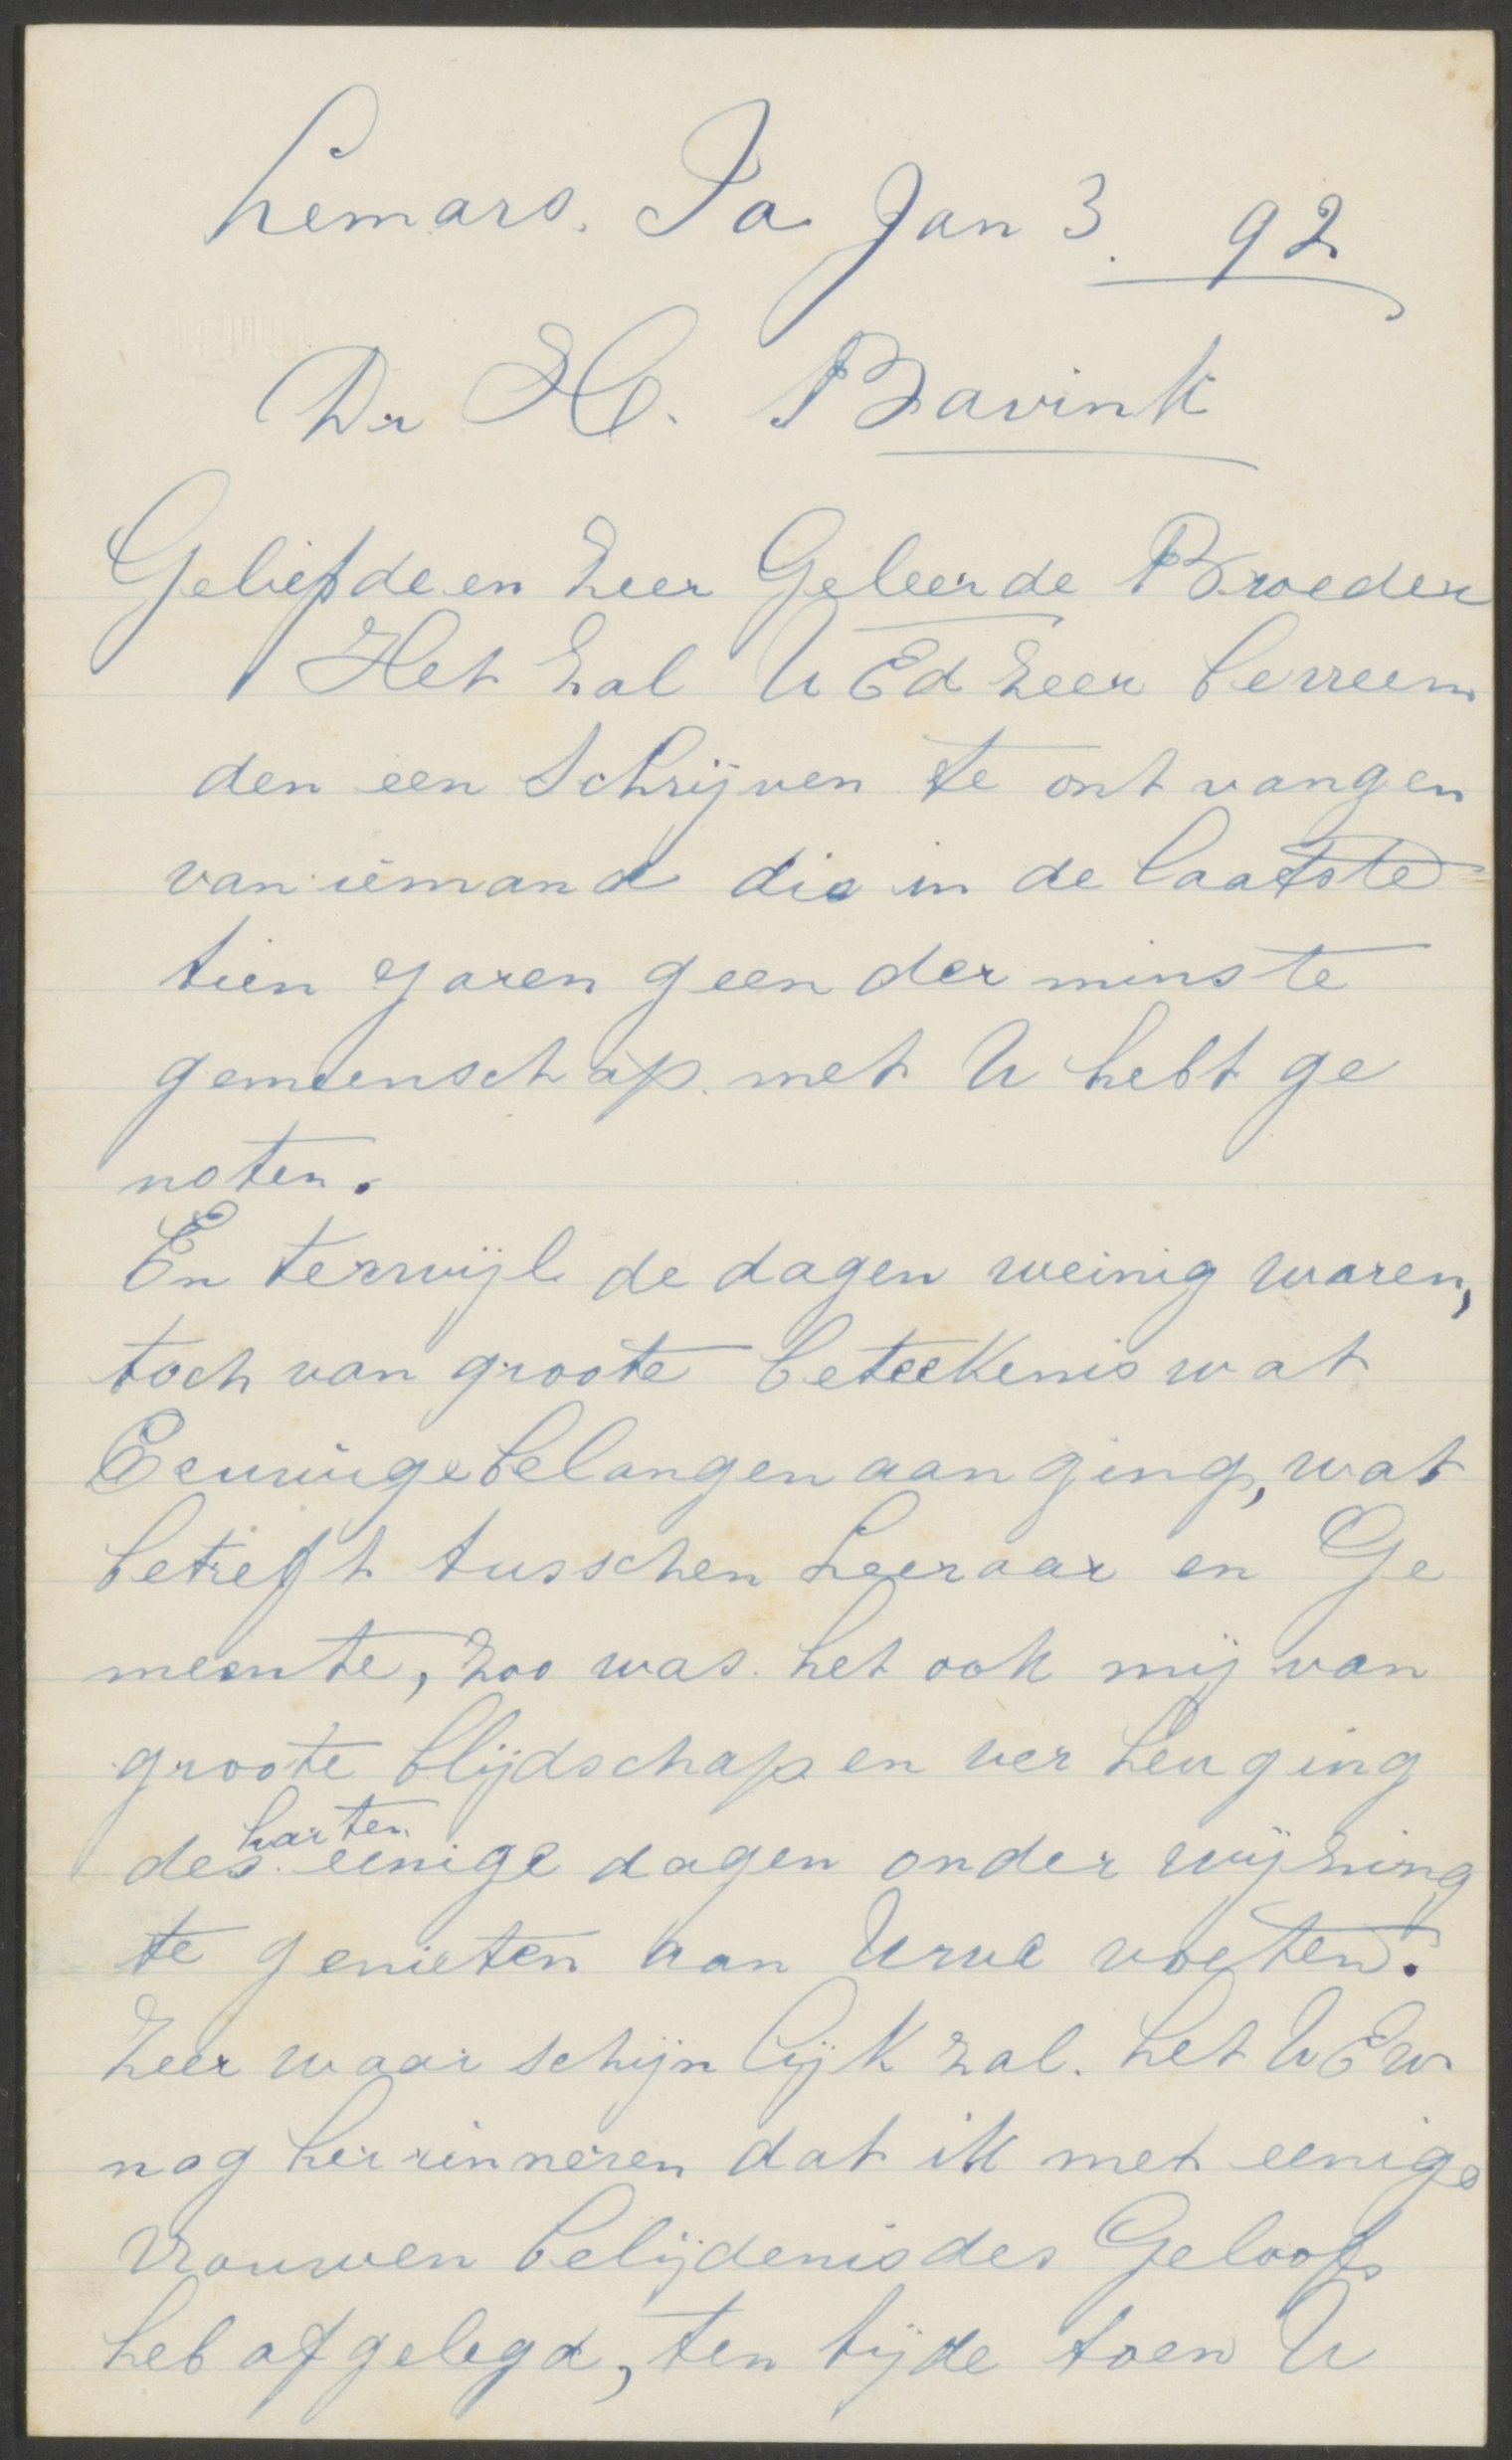 Lemars. Ia Jan 3. 92
Dr H. Bavink
Geliefde en Zeer Geleerde Broeder
Het zal U Ed zeer bevreem
den een Schrijven te ontvangen
van iemand die in de laatste
tien yaren geen der minste
gemeenschap met U hebt ge
noten.
En terwijl de dagen weinig waren,
toch van groote beteekenis wat
Eeuwige belangen aanging, wat
betreft tusschen Leeraar en Ge
meente, zoo was het ook mij van
groote blijdschap en verheuging
des harten eenige dagen onderwijzing
te genieten aan Uwe voeten.
Zeer waarschijnlijk zal het U Ew
nog herrinneren dat ik met eenige
Vrouwen belijdenis des Geloofs
heb afgelegd, ten tijde toen U